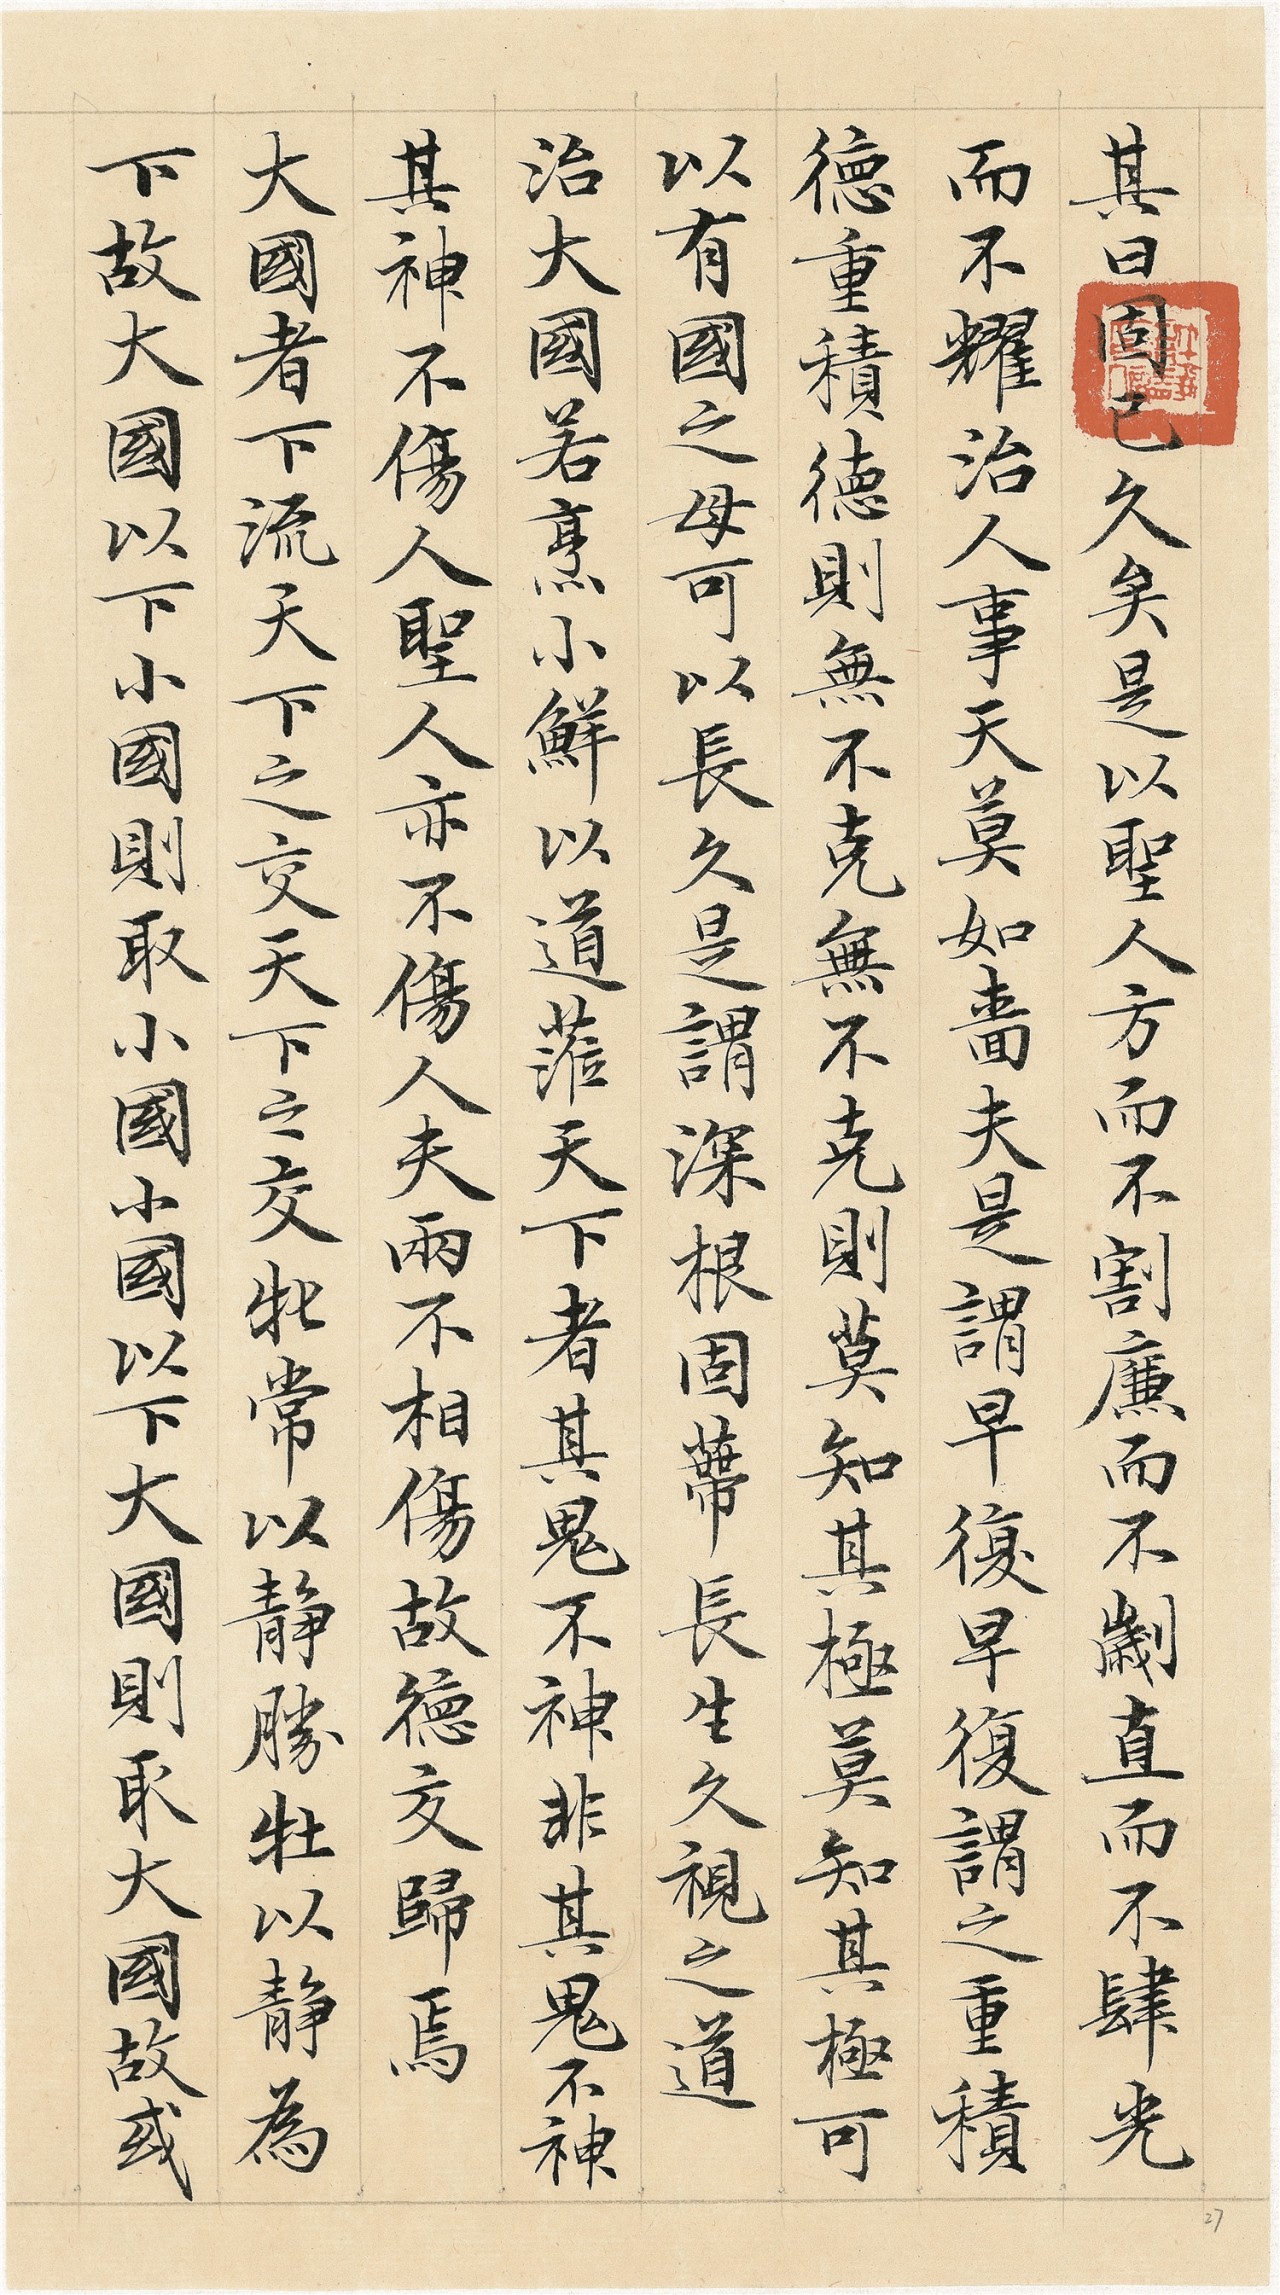 其日固已久矣是以聖人方而不割廉而不劌直而不肆光
而不耀治人事天莫如嗇夫是謂早早復早復謂之重積
德重積德則無不克無不克則莫知其極莫知其極可
以有國之母可以長久是謂深根固蔕長生久視之道
治大國若烹小鮮以道蒞天下者其鬼不神非其鬼不神
其神不傷人聖人亦不傷人夫兩不相傷故德交歸焉
大國者下流天下之交天下之交牝常以靜勝牡以靜為
下故大國以下小國則取小國小國以下大國則取大國故或
27